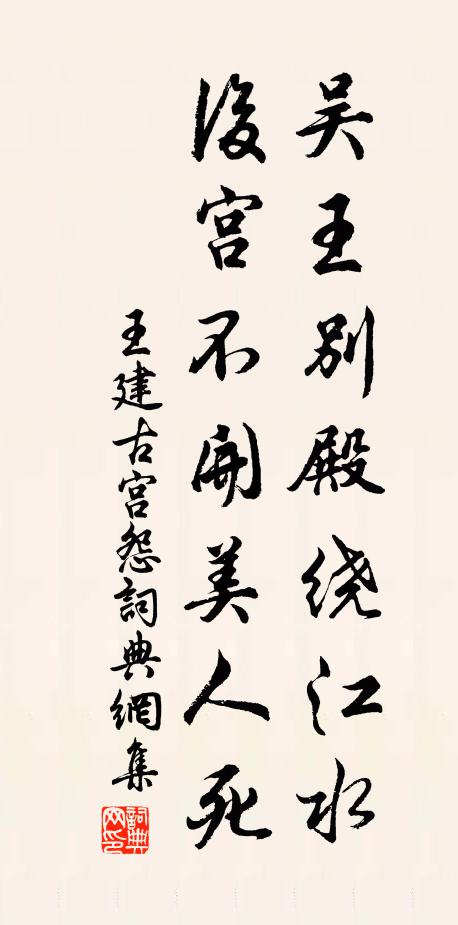 吴王别殿绕江水
後宫不開美人死
王建古宫怨詞典網集
詞典網印